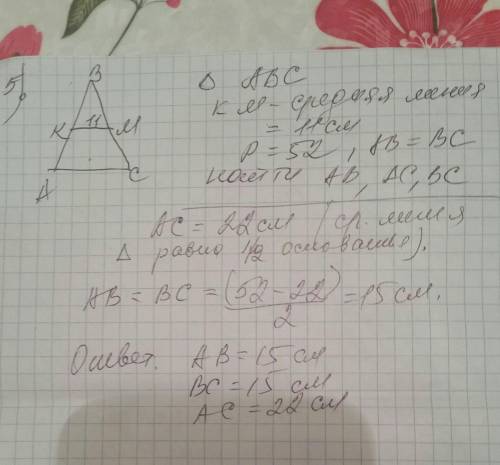 5)
B
Δ ABC
K 11 M
KM - средняя линия
= 11 см
P = 52, AB = BC
A C
найти AB, AC, BC
AC = 22 см (ср. линия
Δ равно 1/2 основанья).
AB = BC = (52 - 22)/2 = 15 см.
Ответ. AB = 15 см
BC = 15 см
AC = 22 см